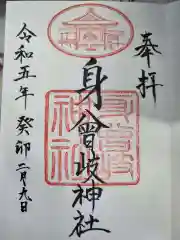 奉拝
身曾岐神社
令和五年 癸卯 二月九日
身曾岐
神社